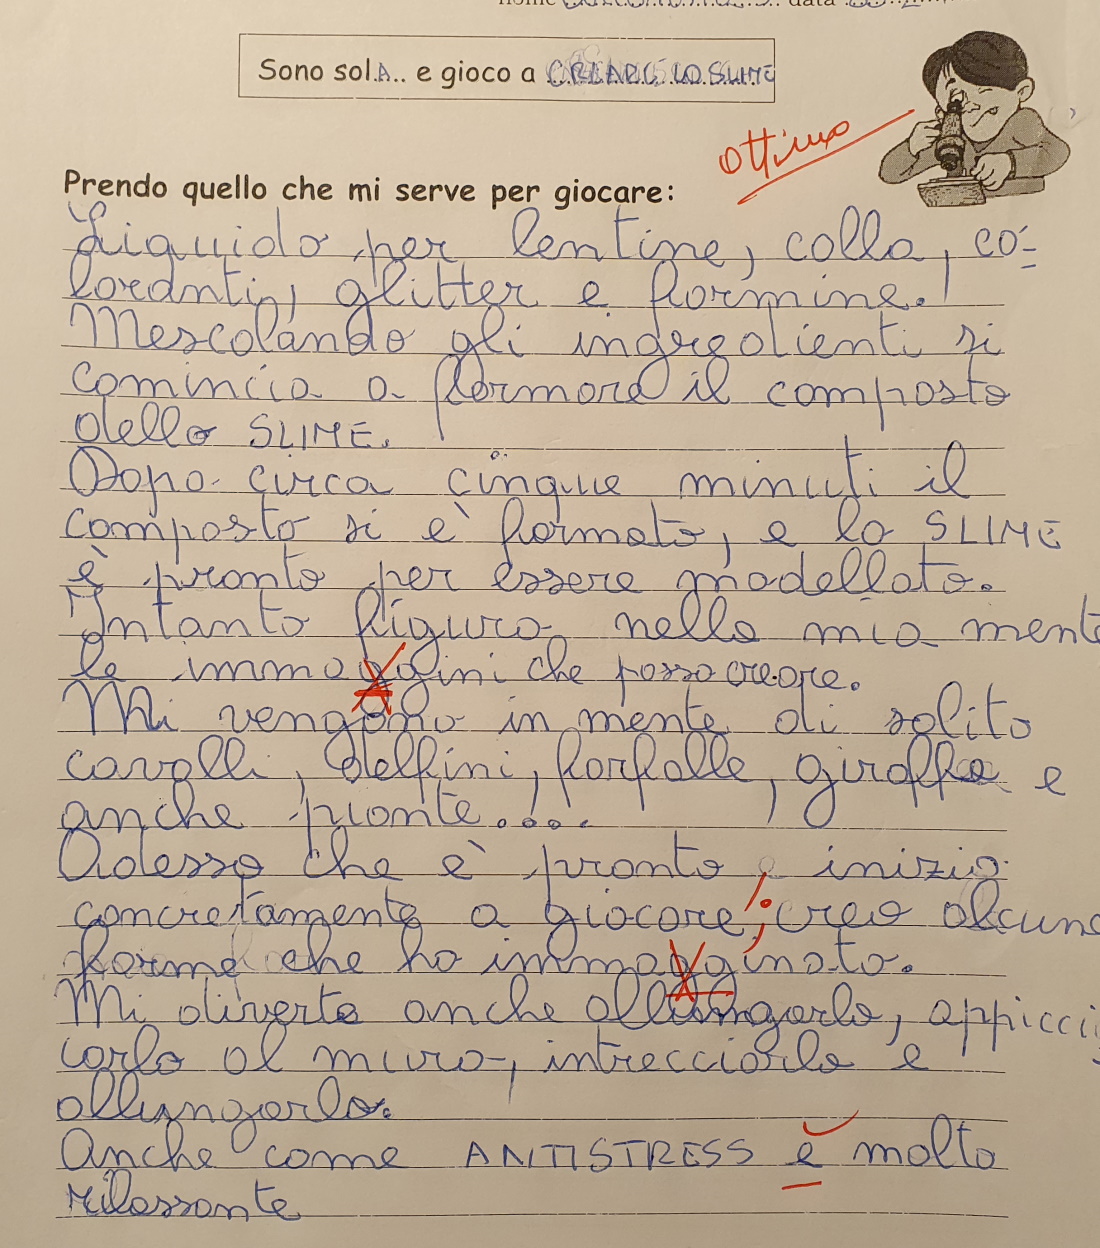 nome data
Sono sol.A.. e gioco a CREARE LO SLIME
ottimo
Prendo quello che mi serve per giocare:
Liquido per lentine, colla, co=
loranti, glitter e formine.
Mescolando gli ingredienti si
comincia a formare il composto
dello SLIME.
Dopo circa cinque minuti il
composto si è formato, e lo SLIME
è pronto per essere modellato.
Intanto figuro nella mia mente
le immaggini che posso creare.
Mi vengono in mente di solito
cavalli, delfini, farfalle, giraffe e
anche piante....
Adesso che è pronto inizio
concretamente a giocare; creo alcune
forme che ho immagginato.
Mi diverto anche allungarlo, appicci
carlo al muro, intrecciarlo e
allungarlo.
Anche come ANTISTRESS è molto
rilassante